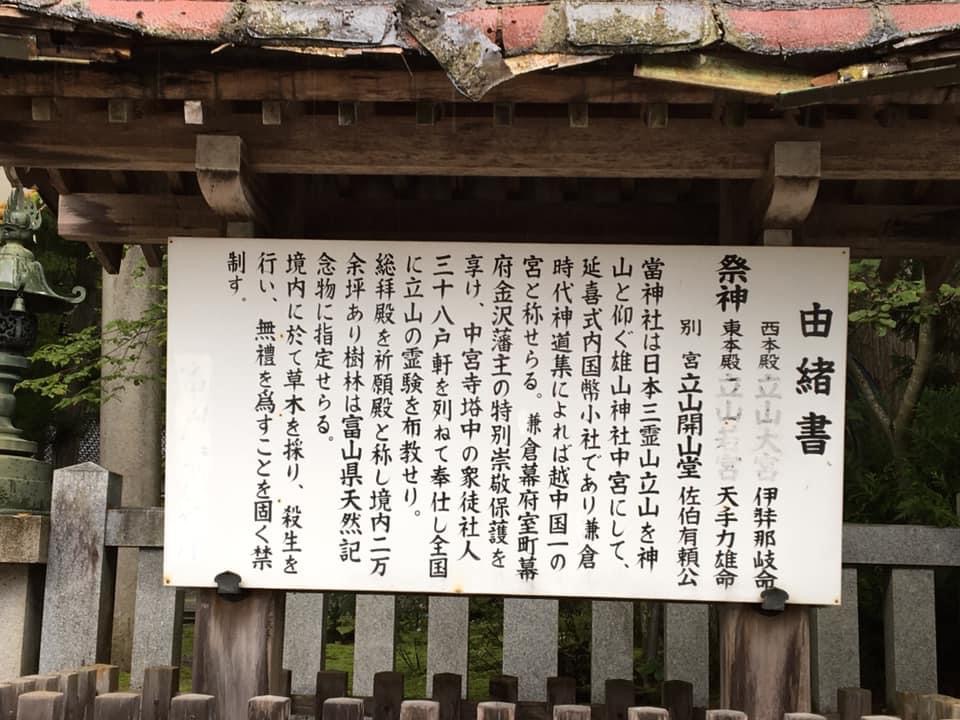 由緒書
祭神 西本殿 立山大宮 伊弉那岐命
東本殿 立山若宮 天手力雄命
別宮 立山開山堂 佐伯有頼公
當神社は日本三霊山立山を神
山と仰ぐ雄山神社中宮にして、
延喜式内国幣小社であり兼倉
時代神道集によれば越中国一の
宮と称せらる。兼倉幕府室町幕
府金沢藩主の特別崇敬保護を
享け、中宮寺塔中の衆徒社人
三十八戸軒を列ねて奉仕し全国
に立山の霊験を布教せり。
総拝殿を祈願殿と称し境内二万
余坪あり樹林は富山県天然記
念物に指定せらる。
境内に於て草木を採り、殺生を
行い、無禮を為すことを固く禁
制す。